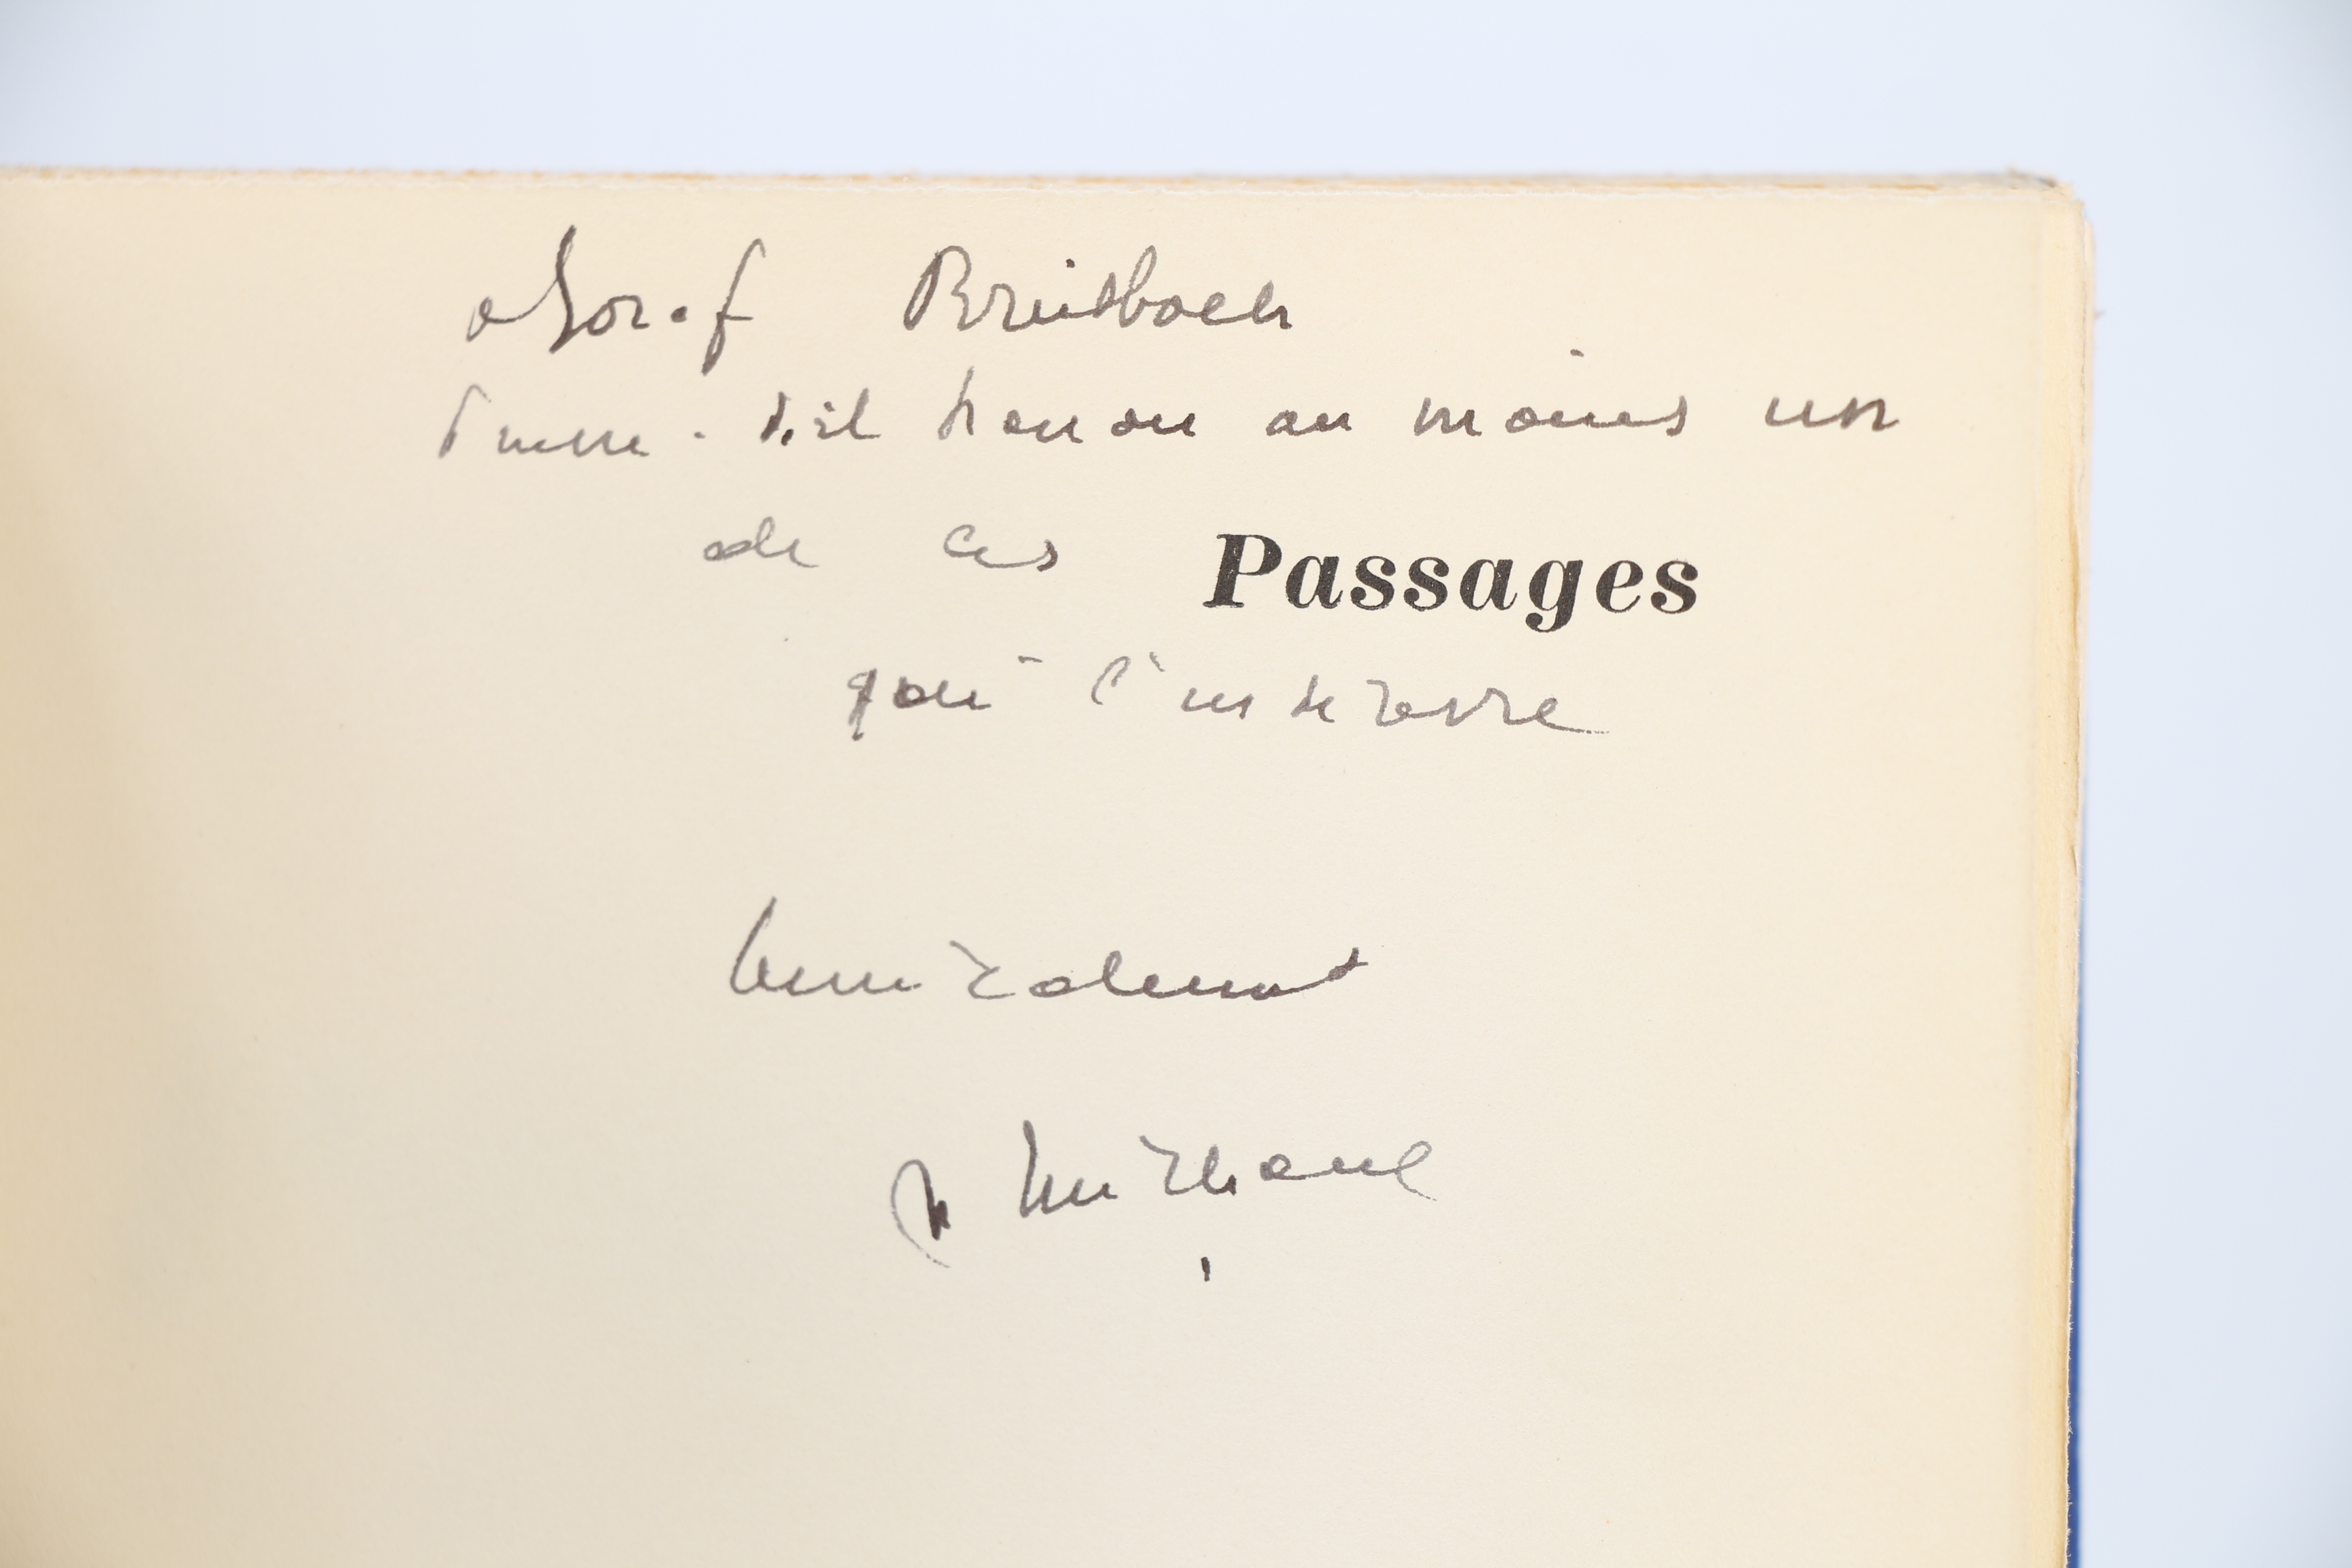 à Josef Breitbach
Puisse-t-il trouver au moins un
de ces Passages
qui l'intéresse
Amicalement
H Michaux